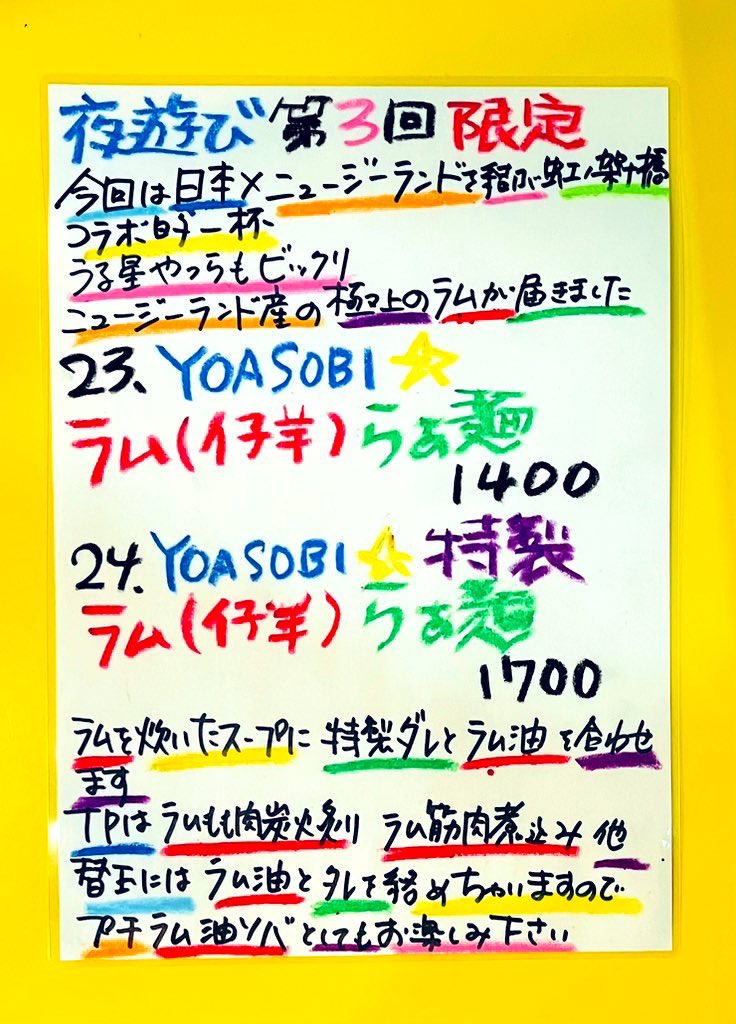 夜遊び 第3回 限定
今回は日本×ニュージーランドを結ぶ虹ノ架け橋
コラボ的一杯
うる星やつらもビックリ
ニュージーランド産の極上のラムが届きました
23. YOASOBI ☆
ラム(仔羊)らぁ麺
1400
24. YOASOBI ☆ 特製
ラム(仔羊)らぁ麺
1700
ラムを炊いたスープに 特製ダレと ラム油を合わせ
ます
TPは ラムもも肉炭火炙り ラム筋肉煮込み 他
替玉には ラム油と タレを絡めちゃいますので
プチラム油ソバとしてもお楽しみ下さい